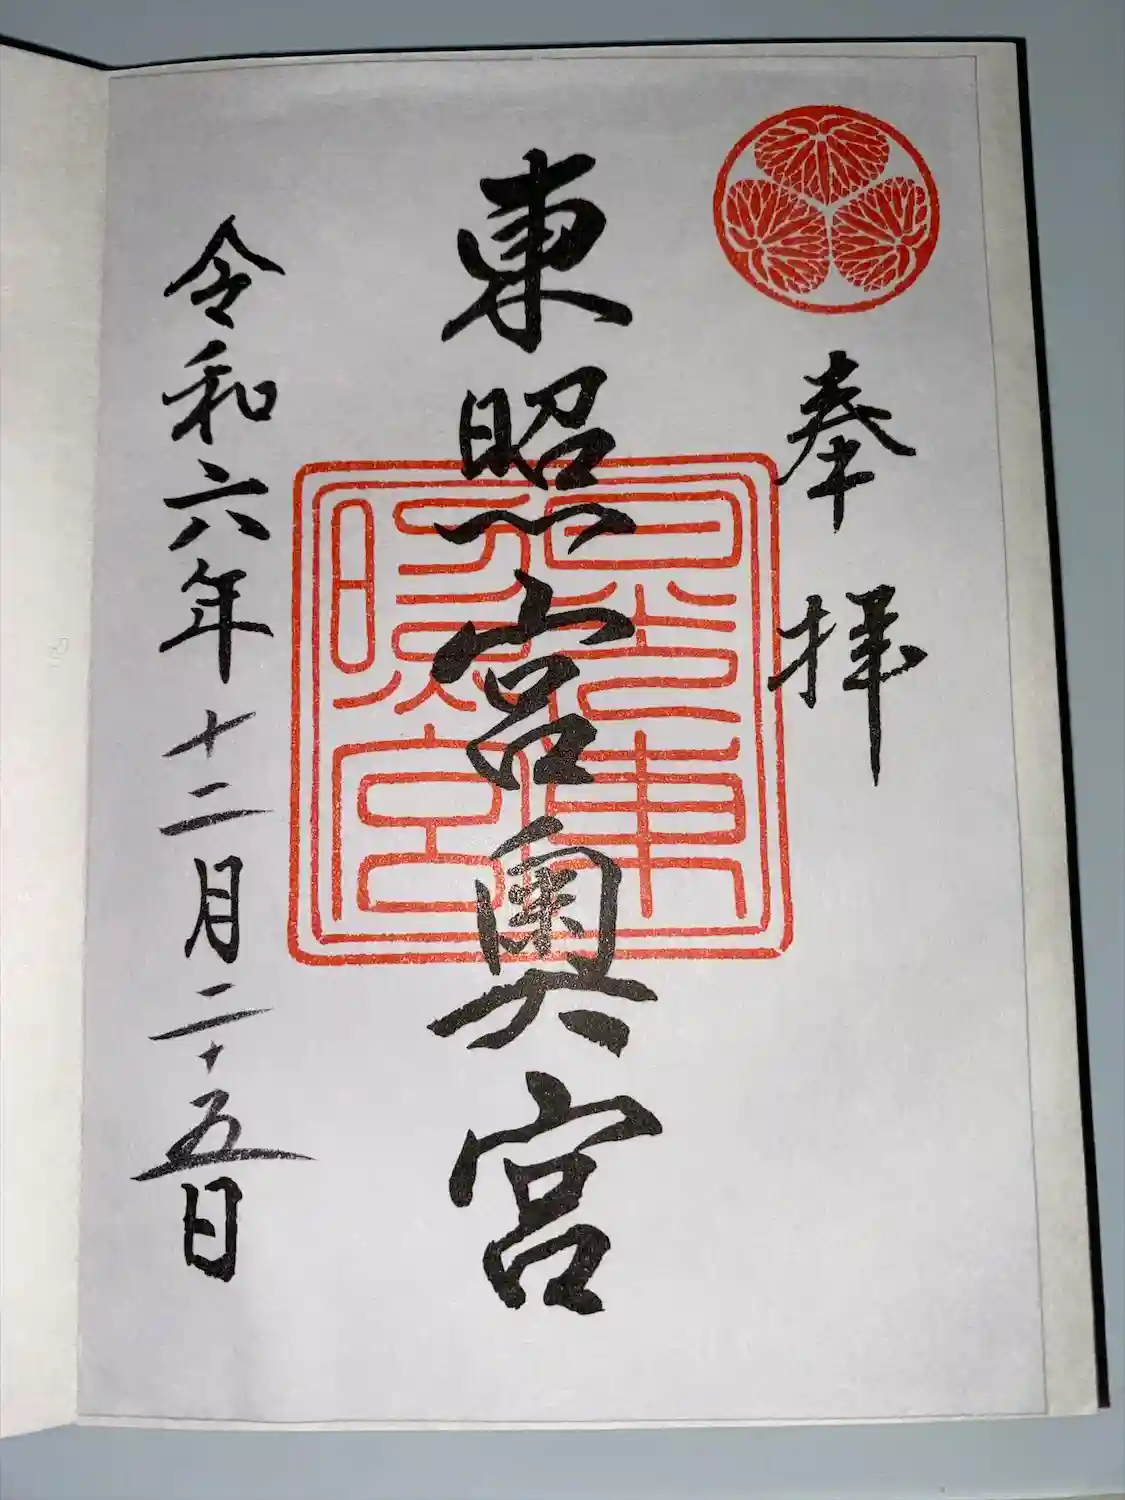 奉拝
東照宮奥宮
令和六年十二月二十五日